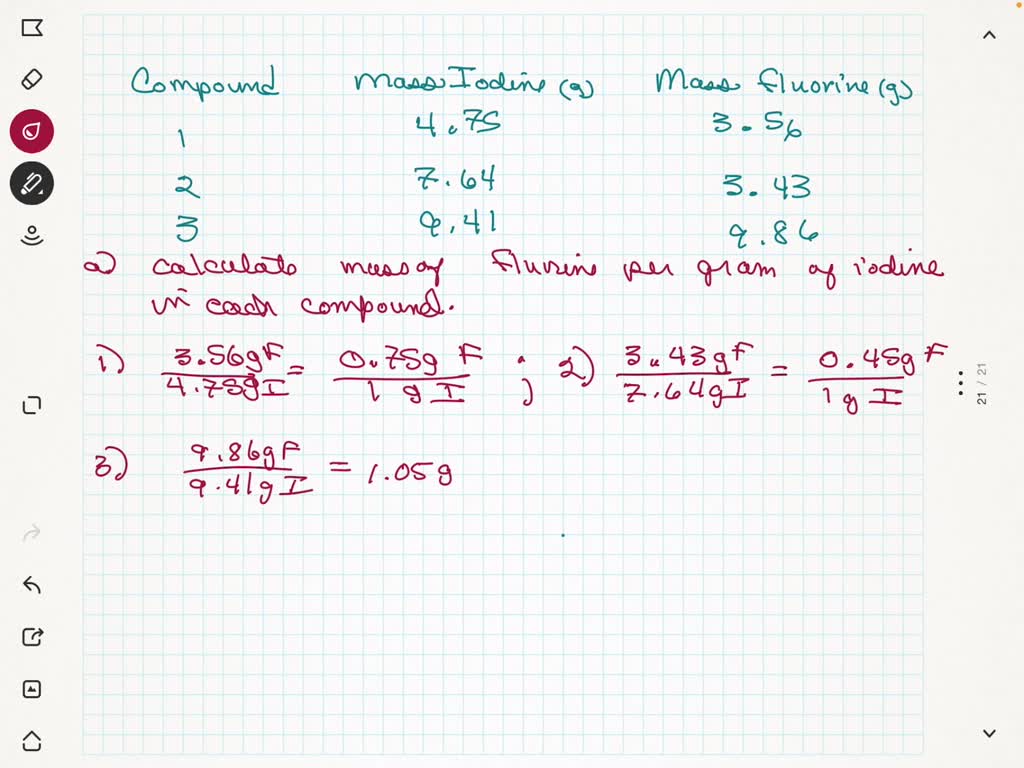 Compound Mass Iodine (g) Mass fluorine (g)
1 4.75 3.56
2 7.64 3.43
3 9.41 9.86
a) calculate mass of flurine per gram of iodine
in each compound.
1) 3.56g F / 4.75g I = 0.75g F / 1 g I ; 2) 3.43g F / 7.64g I = 0.45g F / 1g I
3) 9.86g F / 9.41g I = 1.05g
21 / 21